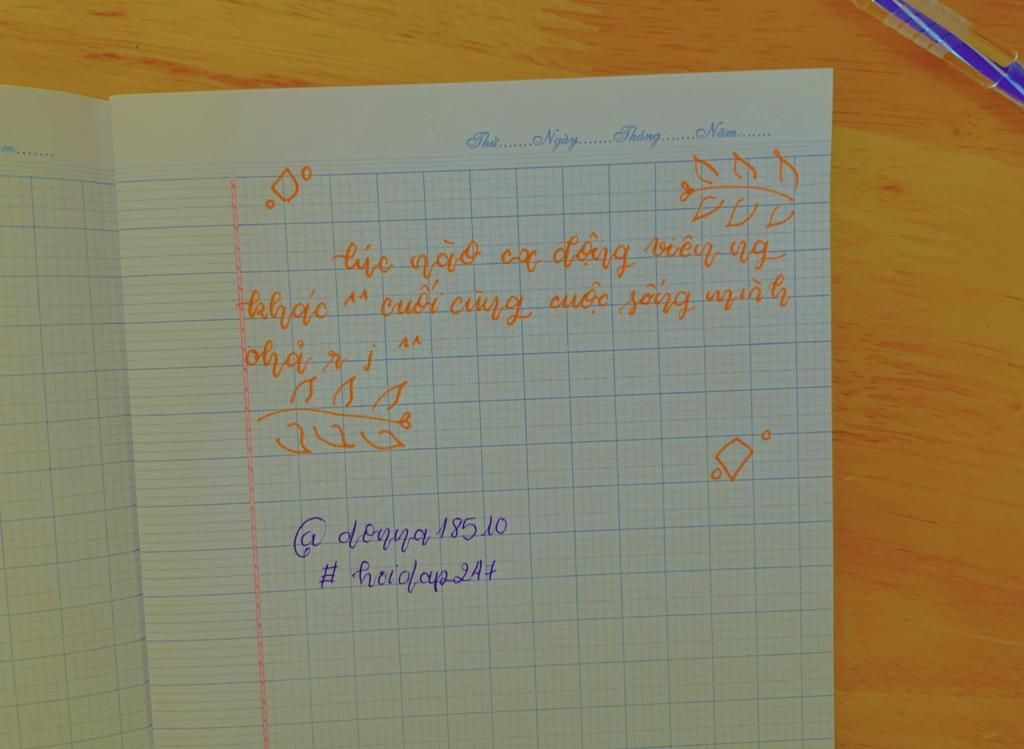 m.......
Thứ.......Ngày.......Tháng.......Năm.......
lúc nào cx động viên ng
khác " cuối cùng cuộc sống mình
chả r j "
@donna18510
# hoidap247